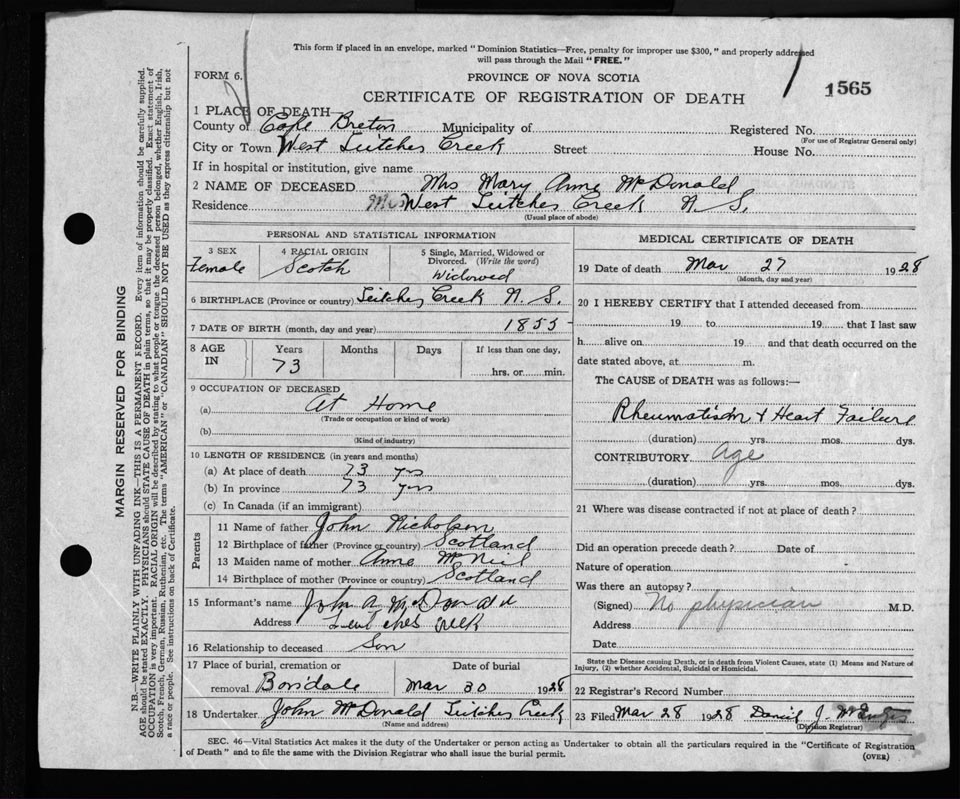 This form if placed in an envelope, marked "Dominion Statistics—Free, penalty for improper use $300," and properly addressed
will pass through the Mail "FREE."
FORM 6.
PROVINCE OF NOVA SCOTIA
1565
CERTIFICATE OF REGISTRATION OF DEATH
1 PLACE OF DEATH—
County of Cape Breton Municipality of Registered No.
(For use of Registrar General only)
City or Town West Leitches Creek Street House No.
If in hospital or institution, give name
2 NAME OF DECEASED Mrs Mary Anne McDonald
Residence West Leitches Creek N. S.
(Usual place of abode)
PERSONAL AND STATISTICAL INFORMATION
3 SEX 4 RACIAL ORIGIN 5 Single, Married, Widowed or
Divorced. (Write the word)
Female Scotch Widowed
6 BIRTHPLACE (Province or country) Leitches Creek N. S.
7 DATE OF BIRTH (month, day and year) 1855
8 AGE IN Years Months Days If less than one day,
73 hrs. or min.
9 OCCUPATION OF DECEASED
(a) At Home
(Trade or occupation or kind of work)
(b)
(Kind of industry)
10 LENGTH OF RESIDENCE (in years and months)
(a) At place of death 73 yrs
(b) In province 73 yrs
(c) In Canada (if an immigrant)
Parents
11 Name of father John Nicholson
12 Birthplace of father (Province or country) Scotland
13 Maiden name of mother Anne McNeil
14 Birthplace of mother (Province or country) Scotland
15 Informant's name John A McDonald
Address Leitches Creek
16 Relationship to deceased Son
17 Place of burial, cremation or Date of burial
removal Boisdale Mar 30 1928
18 Undertaker John McDonald Leitches Creek
(Name and address)
MEDICAL CERTIFICATE OF DEATH
19 Date of death Mar 27 1928
(Month, day and year)
20 I HEREBY CERTIFY that I attended deceased from
19 to 19 that I last saw
h alive on 19 and that death occurred on the
date stated above, at m.
The CAUSE of DEATH was as follows:—
Rheumatism + Heart Failure
(duration) yrs. mos. dys.
CONTRIBUTORY Age
(duration) yrs. mos. dys.
21 Where was disease contracted if not at place of death?
Did an operation precede death? Date of
Nature of operation
Was there an autopsy?
(Signed) No physician M.D.
Address
Date
State the Disease causing Death, or in death from Violent Causes, state (1) Means and Nature of
Injury, (2) whether Accidental, Suicidal or Homicidal.
22 Registrar's Record Number
23 Filed Mar 28 1928 Daniel J.
(Division Registrar)
SEC. 46—Vital Statistics Act makes it the duty of the Undertaker or person acting as Undertaker to obtain all the particulars required in the "Certificate of Registration
of Death" and to file the same with the Division Registrar who shall issue the burial permit.
(OVER)
MARGIN RESERVED FOR BINDING
N.B.—WRITE PLAINLY WITH UNFADING INK—THIS IS A PERMANENT RECORD. Every item of information should be carefully supplied.
AGE should be stated EXACTLY. PHYSICIANS should STATE CAUSE OF DEATH in plain terms, so that it may be properly classified. Exact statement of
OCCUPATION is very important. RACIAL ORIGIN will be described by stating to what people or tongue the deceased person belonged, whether English, Irish,
Scotch, French, German, Russian, Ruthenian, etc. The terms "AMERICAN" or "CANADIAN" SHOULD NOT BE USED as they express citizenship but not
a race or people. See instructions on back of Certificate.